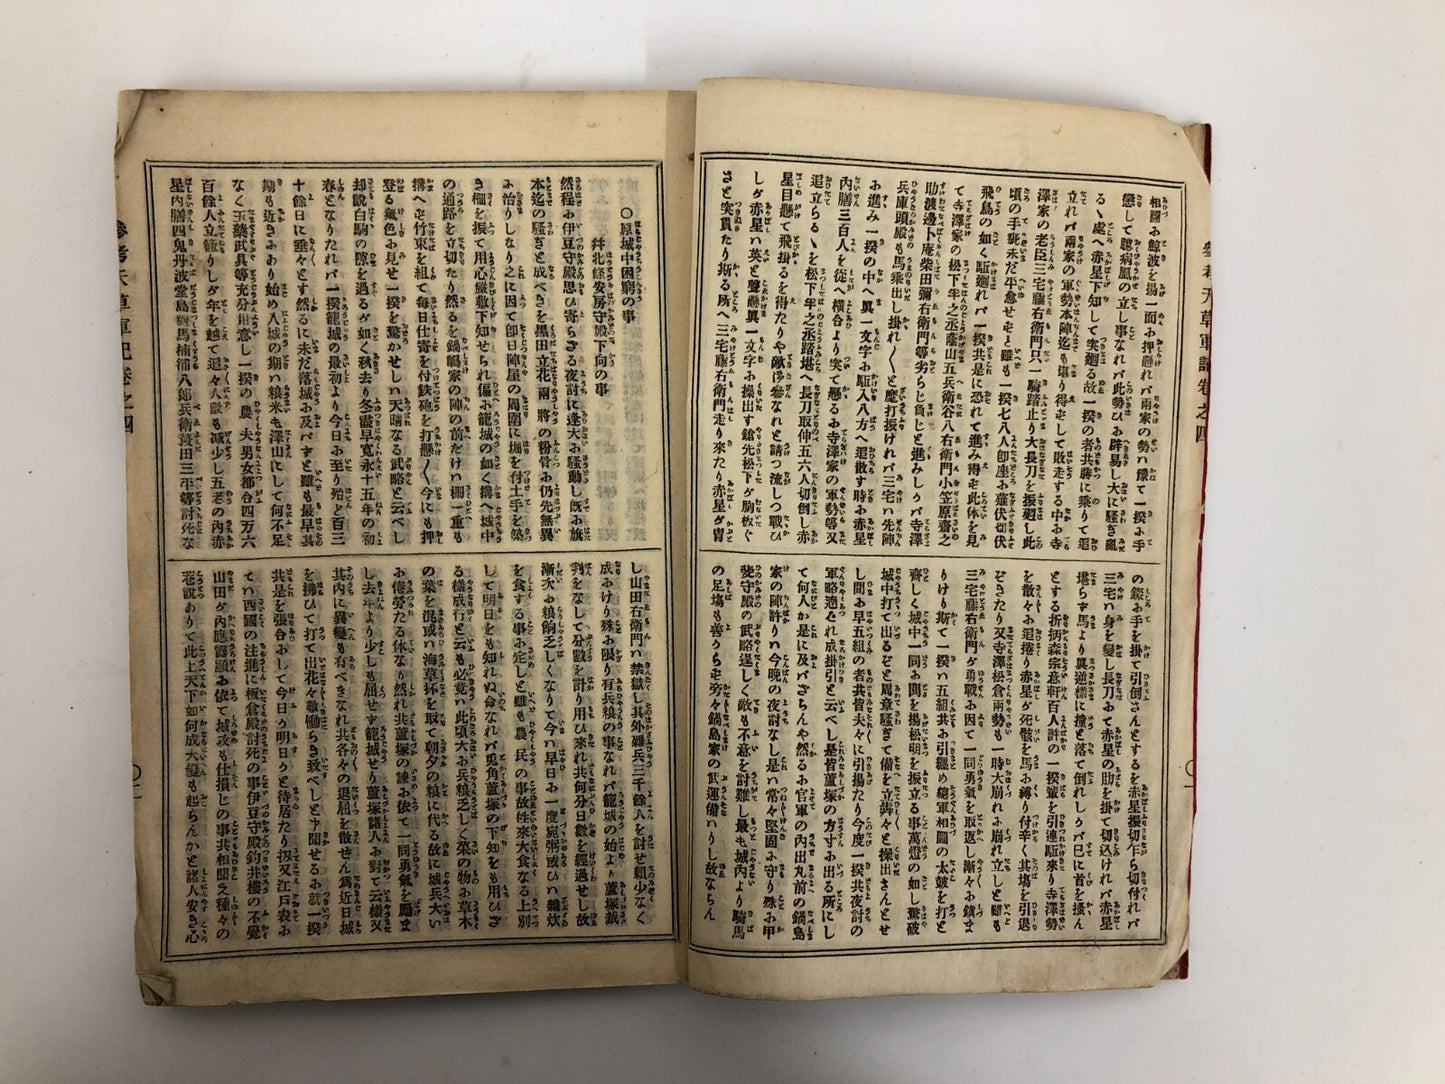 參考天草軍記卷之四
相圖の鯨波を揚一面お押懸れバ兩家の勢ハ豫て一揆お手
懲して聽病風の立し事なれバ此勢ひお辟易し大ひに騷ぎ亂
るゝ處へ赤星下知して突廻る故一揆の者共勝に乘りて追
立れバ兩家の軍勢本陣迄も堪り得ずして敗走する中お寺
澤家の老臣三宅藤右衛門只一騎踏止り大長刀を振廻し此
頃の手疵未だ平愈せずと雖も一揆七八人即座お薙伏切伏
飛鳥の如く駈廻れバ一揆共是に恐れて進み得ず此体を見
て寺澤家の松下半之丞蔭山五兵衛谷八右衛門小笠原齋之
助渡邊卜庵柴田彌右衛門等劣らじ負じと進みしかバ寺澤
兵庫頭殿も馬乘出し掛れ〱と麾打振けれバ三宅ハ先陣
お進み一揆の中へ眞一文字お駈入八方へ追散す時お赤星
内膳三百人を從へ横合より突て懸るお寺澤家の軍勢等又
追立らるゝを松下半之丞踏堪へ長刀取伸五六人切倒し赤
星目懸て飛掛るを得たりや敵御參なれと請つ流しつ戰ひ
しが赤星ハ英と聲懸眞一文字お操出す鎗先松下が胸板ぐ
さと突貫たり斯る所へ三宅藤右衛門走り來たり赤星が冑
の錣お手を掛て引倒さんとするを赤星振切乍ら切付れバ
三宅ハ身を變し長刀おて赤星の肋を掛て切込けれバ赤星
堪らず馬より眞逆樣に撞と落て倒れしかバ已に首を掻ん
とする折柄森宗意軒百人許の一揆輩を引連駈來り寺澤勢
を散々お追捲り赤星が死骸を馬お縛り付辛く其塲を引退
ぞきたり又寺澤松倉兩勢も一時大崩れお崩れ立しと雖も
三宅藤右衛門が勇戰お因て一同勇氣を取返し漸々お鎭ま
りけり斯て一揆ハ五組共お引纒め總軍相圖の太皷を打と
齊しく城中一同お鬨を揚松明を振立る事萬燈の如し驚破
城中打て出るぞと周章騷ぎて備を立犇々と操出さんとせ
し間お早五組の者共皆夫々に引揚たり今度一揆共夜討の
軍略適お成掛引と云べし是皆蘆塚の方寸お出る所にし
て何人か是に及バざらんや然るお官軍の内出丸前の鍋島
家の陣許りハ今晩の夜討なし是ハ常々堅固お守り殊お甲
斐守殿の武略逞しく敵も不意を討難し最も城内より騎馬
の足塲も善からず旁々鍋島家の武運備ハりし故ならん
○原城中困窮の事
幷北條安房守殿下向の事
然程お伊豆守殿思ひ寄らざる夜討に逢大お騷動し既お旗
本迄の騷ぎと成べきを黑田立花兩將の粉骨お仍先無異
お治りしなり之に因て即日陣屋の周圍に塀を付土手を築
き柵を振て用心嚴敷下知せられ偏お籠城の如く搆へ城中
の通路を立切たり然るを鍋嶋家の陣の前だけハ柵一重も
搆へず竹束を組て毎日仕寄を付鉄砲を打懸〱今にも押
登る氣色お見せ一揆を驚かせしハ天晴なる武略と云べし
却説白駒の隙を過るが如く秋去り冬盡早寛永十五年の初
春となりたれバ一揆籠城の最初より今日お至り殆ど百三
十餘日に垂々とす然るに未だ落城お及バずと雖も最早其
期も近きおあり始め入城の期ハ粮米も澤山にして何不足
なく玉藥武具等充分用意し一揆の農夫男女都合四万六
百餘人立籠りしが年を越て追々人數も減少し五老の内赤
星内膳四鬼丹波堂島對馬楠浦八郎兵衛段田三平等討死な
し山田右衛門ハ禁獄し其外雜兵三千餘人を討せ頼少なく
成おけり殊お限り有兵粮の事なれバ籠城の始より蘆塚裁
判をなして分數を計り用ひ來れ共何分日數を經過せし故
漸次お粮餉乏しくなりて今ハ早日お一度宛粥或ひハ雜炊
を食する事お定しと雖も農民の事故性來大食なる上別
して明日をも知れぬ命なれバ兎角蘆塚の下知をも用ひざ
る樣成行と云も必竟ハ此頃大お兵粮乏しく菜の物お草木
の葉を混或ハ海草抔を取て朝夕の粮に代る故に城兵大い
お倦勞たる体なり然れ共蘆塚の諫お依て一同勇氣を勵ま
し去年より少しも屈せず籠城せり蘆塚諸人お對て云樣又
其内に異變も有べきなれ共各々の退屈を散せん爲近日城
を拂ひて打て出花々敷働らき致べしと申聞せるお就一揆
共是を張合おして今日か明日かと待居たり扨又江戸表お
てハ西國の注進に板倉殿討死の事伊豆守殿釣井樓の不覺
山田が内應露顯お依て城攻も仕損じの事共相聞之種々の
巷説ありて此上天下如何成大變も起らんかと諸人安き心
參考天草軍記卷之四